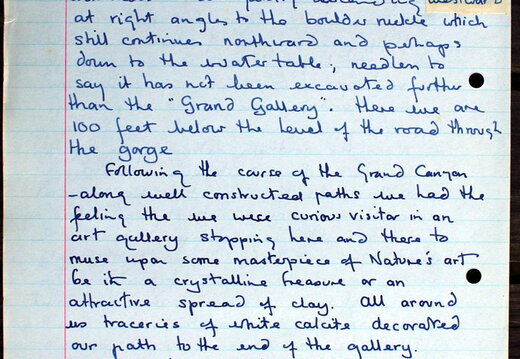 westward
at right angles to the boulder ruckle which
still continues northward and perhaps
down to the water table; needless to
say it has not been excavated further
than the "Grand Gallery". Here we are
100 feet below the level of the road through
the gorge
Following the course of the Grand Canyon
- along well constructed paths we had the
feeling the we were curious visitor in an
art gallery stopping here and there to
muse upon some masterpiece of Nature's art
be it a crystalline treasure or an
attractive spread of clay. All around
us traceries of white calcite decorated
our path to the end of the gallery.